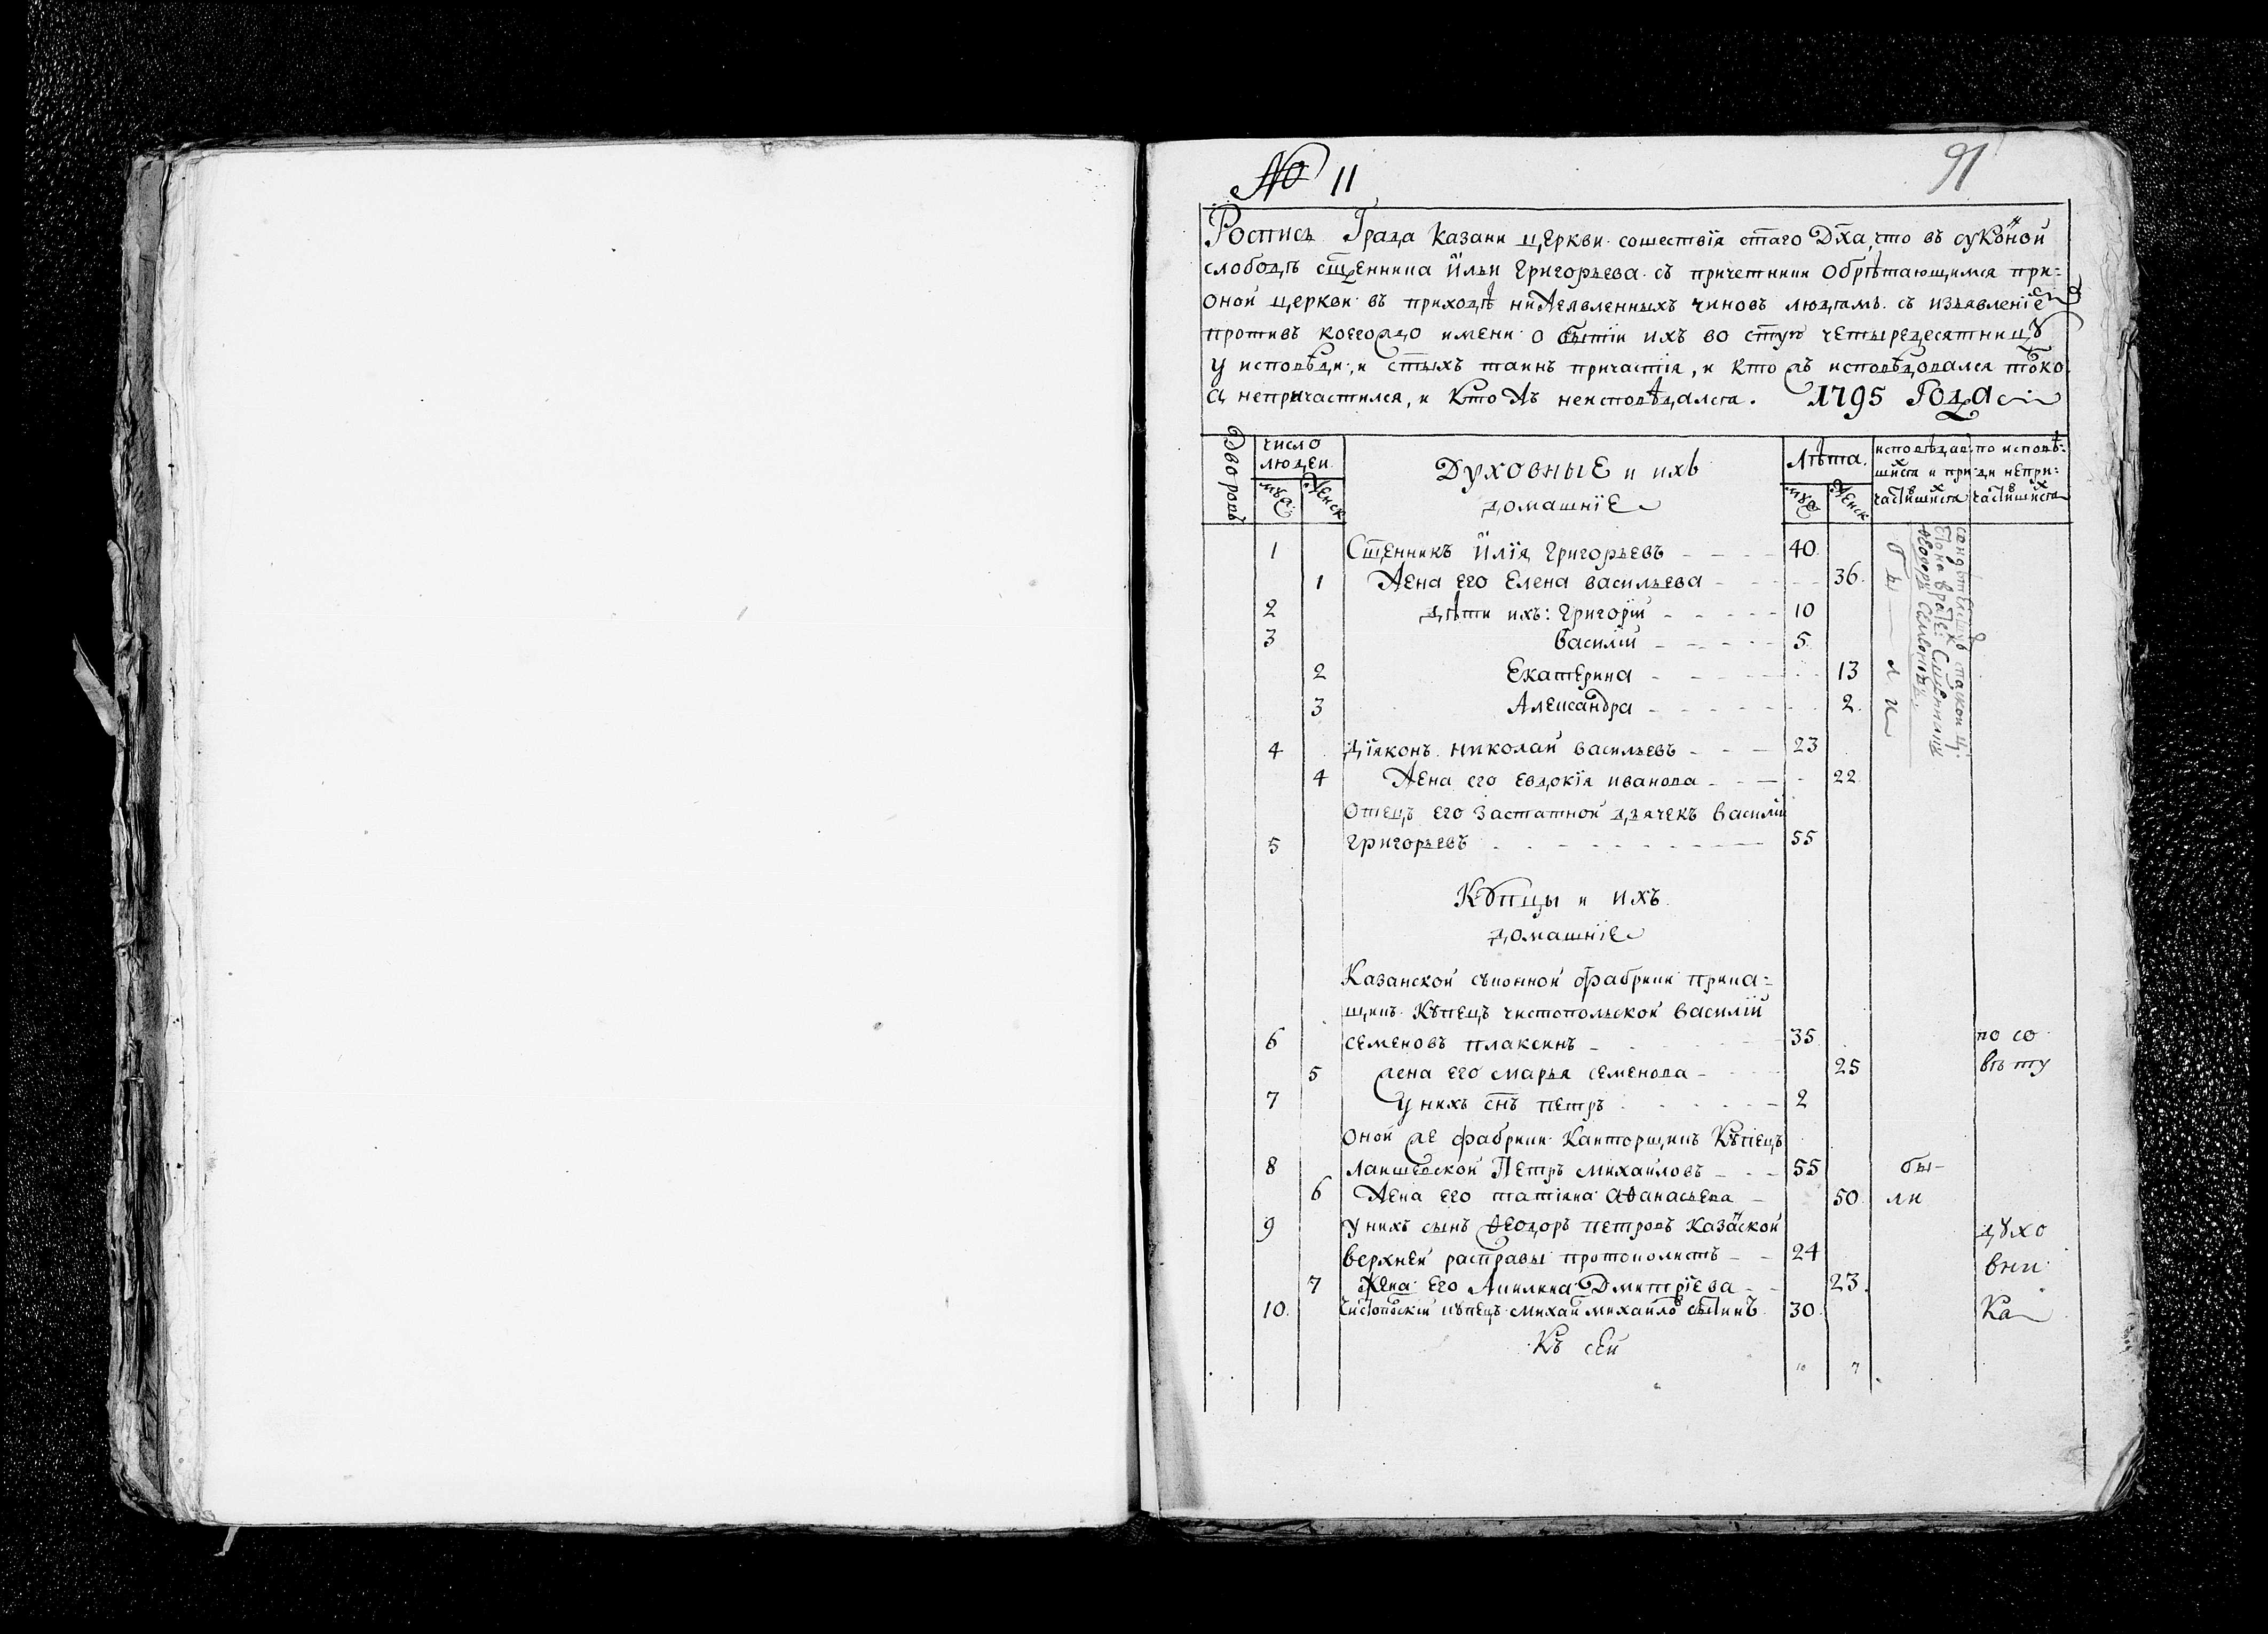 № 11
91
Роспись Града Казани церкви сошествїя стаго Дха, что въ суконой
слободѣ сщенника Ильи Григорьева съ причетники обрѣтающимся при-
оной церкви въ приходѣ нижеявленныхъ чиновъ людямъ съ изъявленїемъ
противъ коегождо имени о бытїи ихъ во стую четыредесятницу
у исповѣди, и стыхъ таинъ причастїя, и кто жъ исповѣдовался токо
а непричастился, и кто жъ неисповѣдался. 1795 Года
Дворовъ
число людей
муж
женск
Духовныѣ и ихъ
домашнїе
Лѣта
муж
женск
исповѣдав-
шихся и при-
частившихся
по исповѣ-
ди непри-
частившихся
1 Сщенникъ Илїя Григорьевъ 40
1 Жена его Елена васильева 36
2 дѣти ихъ: Григорїй 10
3 василїй 5
2 Екатерина 13
3 Александра 2
бы ли
4 Дїаконъ николай васильевъ 23
4 Жена его евдокїя иванова 22
отецъ его Застатной дьячекъ василїй
5 григорьевъ 55
Купцы и ихъ
домашнїе
Казанской суконной фабрики прика-
щикъ Купецъ чистопольской василїй
6 семеновъ плаксинъ 35 по со
5 жена его марья семенова 25 вѣту
7 у нихъ снъ петръ 2
оной же фабрики Канторщикъ Купецъ
8 лаишевской Петръ михайловъ 55 бы-
6 Жена его татїяна Аѳанасьева 50 ли
9 у нихъ сынъ Ѳеодоръ петровъ казанской духо
верхней расправы протоколистъ 24 вни
7 Жена его Акилина Дмитрїева 23
10 купецъ михаи михайло 30 ка
Къ сей
10 7